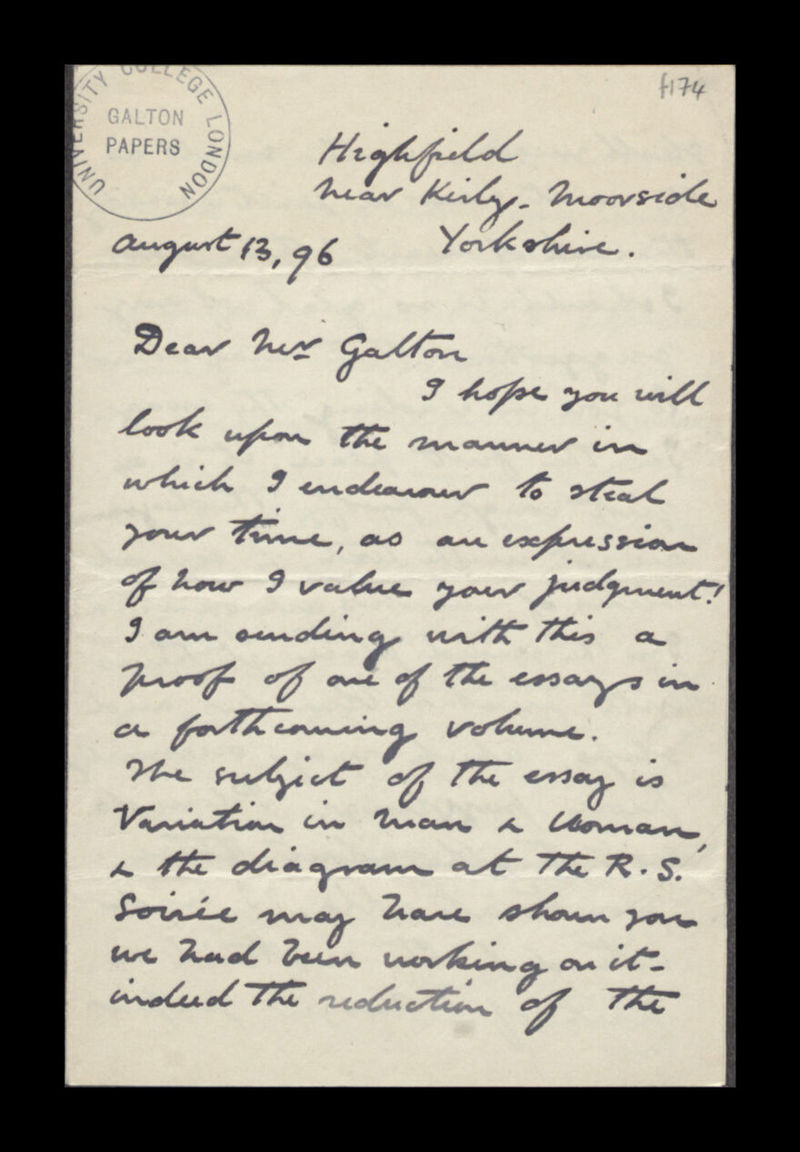 UNIVERSITY COLLEGE LONDON
GALTON
PAPERS
f174
Highfield
Near Kirby-Moorside
Yorkshire.
August 13, 96
Dear Mr Galton
I hope you will
look upon the manner in
which I endeavour to steal
your time, as an expression
of how I value your judgment!
I am sending with this a
proof of one of the essays in
a forthcoming volume.
The subject of the essay is
Variation in Man & Woman,
& the diagram at the R.S.
Soirée may have shown you
we had been working on it-
indeed the reduction of the